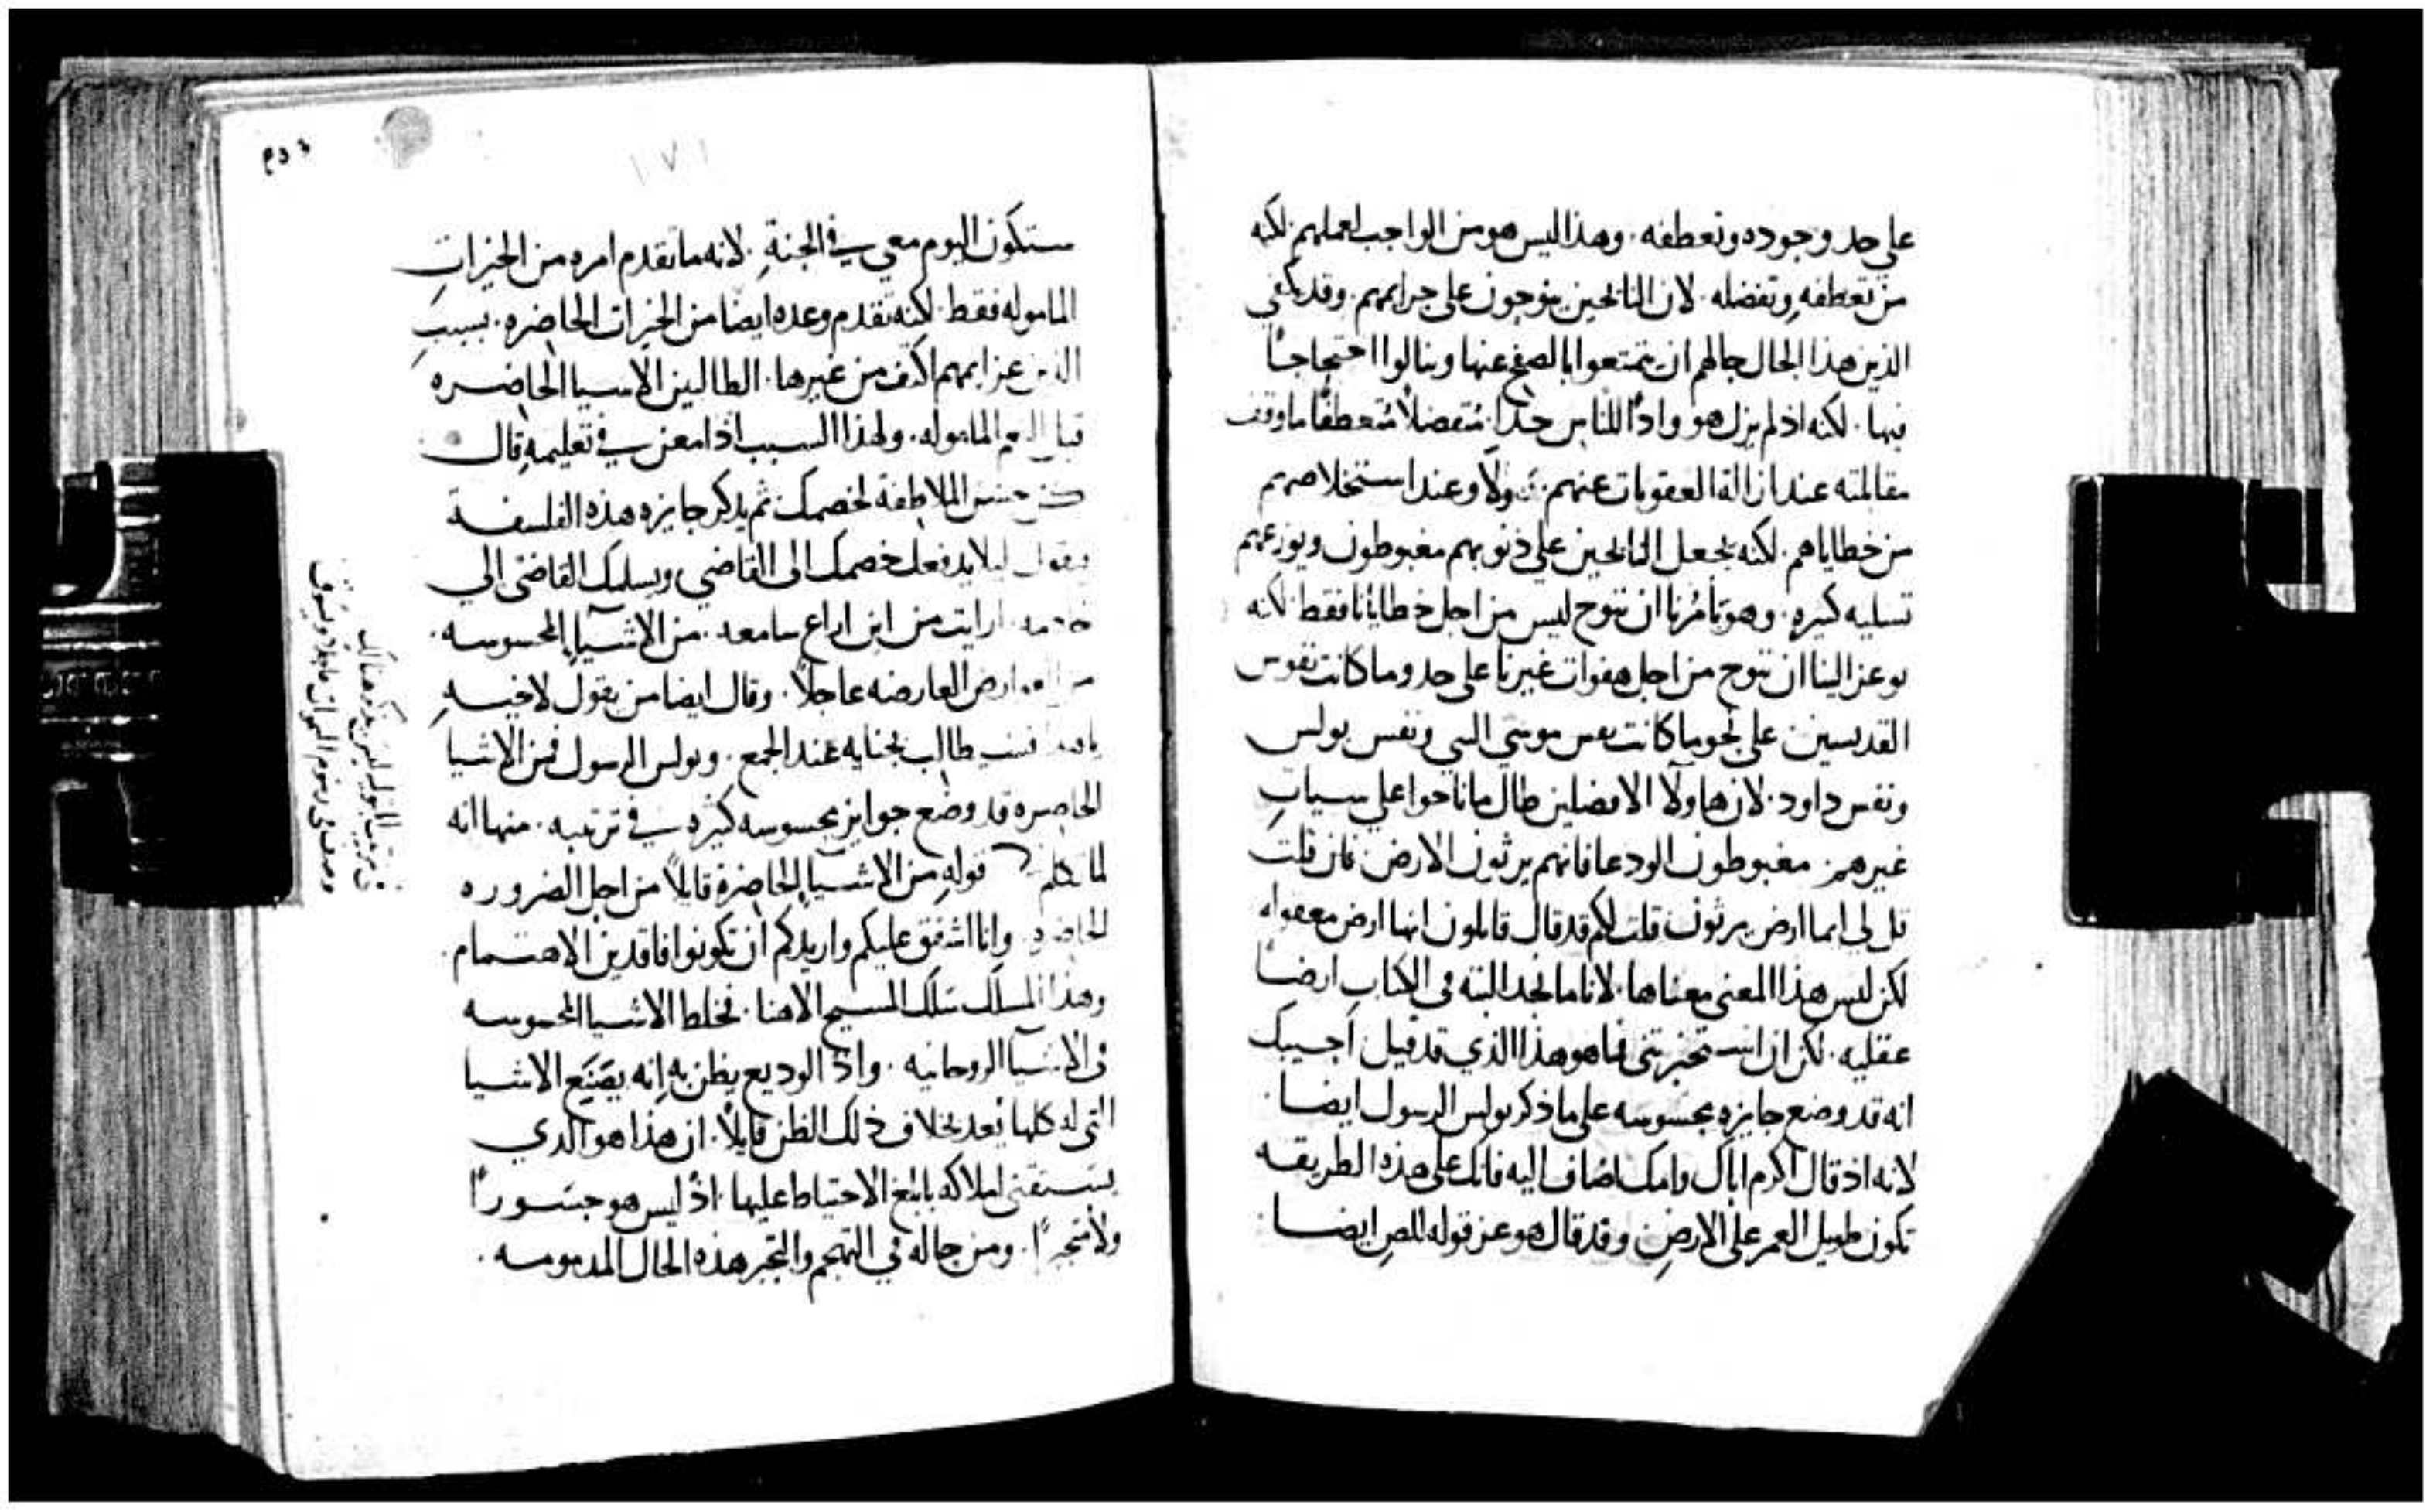 على حد وجوده وتعطفه. وهذا ليس هو من الواجب لعملهم لكنه
من تعطفه وتفضله. لان النايحين ينوحون على جرايمهم. وقد يكفي
الذين هذا الحال حالهم ان يتمتعوا بالصفح عنها وينالوا احتجاجاً
فيها. لكنه اذ لم يزل هو واداً للناس جداً. مُتفضلاً مُتعطفاً ما وقف
مقالته عند ازالة العقوبات عنهم. ولا وعند استخلاصهم
من خطاياهم. لكنه يجعل النايحين على ذنوبهم مغبوطون ويوزعهم
تسليه كثيره. وهو يَأمُرنا ان ننوح ليس من اجل خطايانا فقط لكنه
يوعز الينا ان ننوح من اجل هفوات غيرنا على حد وما كانت نفوس
القديسين على نحو ما كانت نفس موسى النبي ونفس بولس
ونفس داود. لان هاولآ الافضلين طال ما ناحوا على سياتِ
غيرهم. مغبوطون الودعا فانهم يرثون الارض. فان قلت
قل لي ايما ارض يرثون. قلت لكم قد قال قايلون انها ارض معقوله
لكن ليس هذا المعنى معناها. لانا ما نجد البته في الكتابِ ارضاً
عقليه. لكن ان استخبرتني فما هو هذا الذي قد قيل اجيبك
انه قد وضع جايزه محسوسه على ما ذكر بولس الرسول ايضا.
لانه اذ قال اكرم اباك وامك اضاف اليه فانك على هذه الطريقه
تكون طويل العمر على الارضِ وقد قال هو عز قوله للصِ ايضا
١٧١
ستكون اليوم معي في الجنةِ. لانه ما تقدم امره من الخيراتِ
الماموله فقط. لكنه تقدم وعده ايضا من الخيرات الحاضره. بسببِ
الذين عزايمهم اكثف من غيرها. الطالبين الاشيا الحاضره
قبل الماموله. ولهذا السبب اذ امعن في تعليمهِ قال
كن حسن الملاطفة لخصمك ثم يذكر جايزه هذه الفلسفة
ويقول ليلا يدفعك خصمك الى القاضي ويسلمك القاضي الى
خادمه. ارايت من اين اراع سامعه. من الاشيآ المحسوسه.
من العوارض العارضه عاجلاً. وقال ايضا من يقول لاخيهِ
طالب بجنايه عند الجمع. وبولس الرسول فمن الاشيا
الحاضره قد وضع جوايز محسوسه كثيره في ترتيبه. منها انه
لما قوله من الاشيآ الحاضرة قايلاً من اجل الضروره
الحاضره. وانا اشفق عليكم واريدكم ان تكونوا فاقدين الاهتمام.
وهذا المسلك سَلك المسيح الاهنا. فخلط الاشيا المحسوسه
في الاشيا الروحانيه. واذ الوديع يظن به انه يضَيَّع الاشيا
التي له كلها يَعد بخلاف ذلك الظن قايلاً. ان هذا هو الذي
يستقنى املاكه بابلغ الاحتياط عليها. اذ ليس هو جسَوراً
ولا متجبراً. ومن حاله في التهجم والتجبر هذه الحال المذمومه.